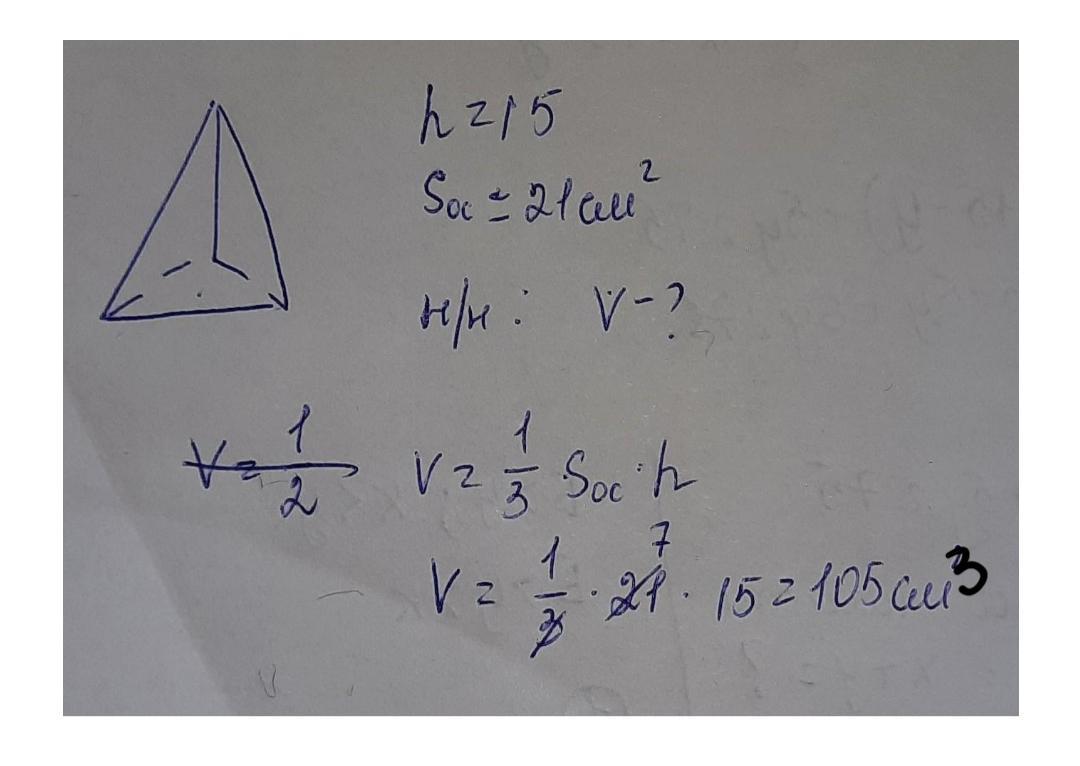 h = 15
Sос = 21 см²
н/н : V - ?
V = 1/2
V = 1/3 Sос · h
V = 1/3 · 21 7 · 15 = 105 см³